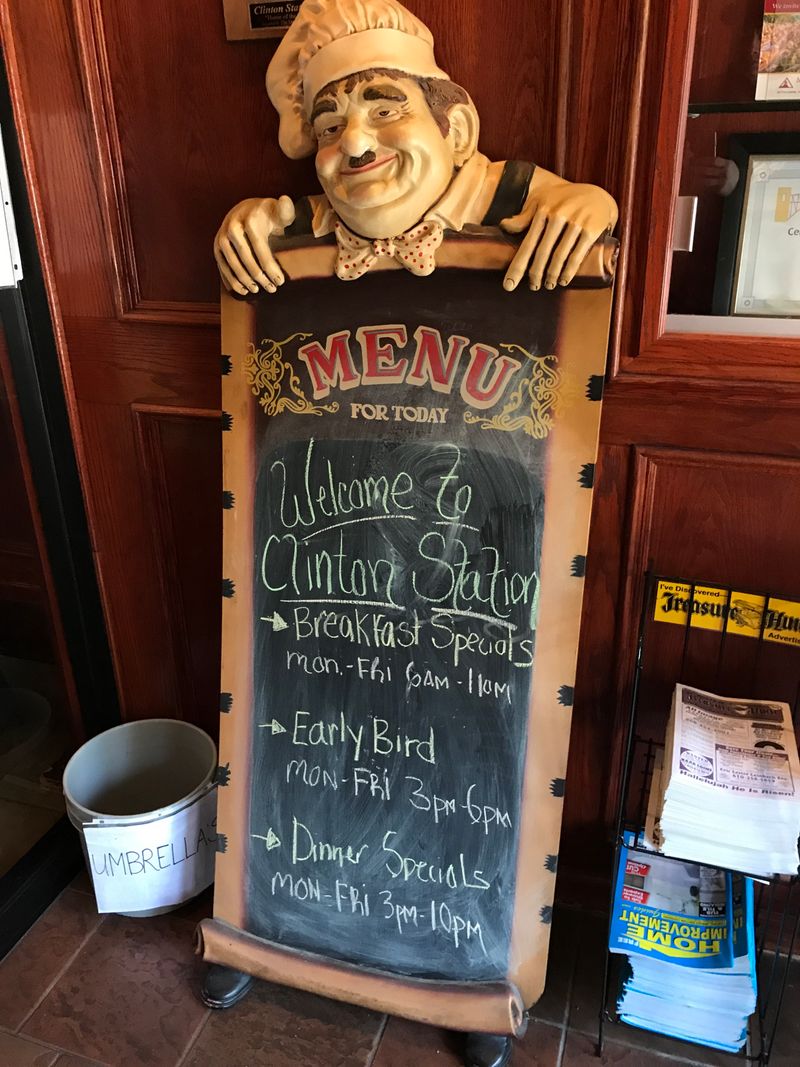 Clinton Sta
MENU
FOR TODAY
Welcome to
Clinton Station
Breakfast Specials
Mon.-Fri 6AM-11AM
Early Bird
MON-FRI 3pm-6pm
Dinner Specials
MON-FRI 3pm-10pm
UMBRELLA'S
We invite
Ce
I've Discovered
Treasure Hun
Advertis
Hallelujah He is Risen!
HOME
IMPROVEMENT
FREE